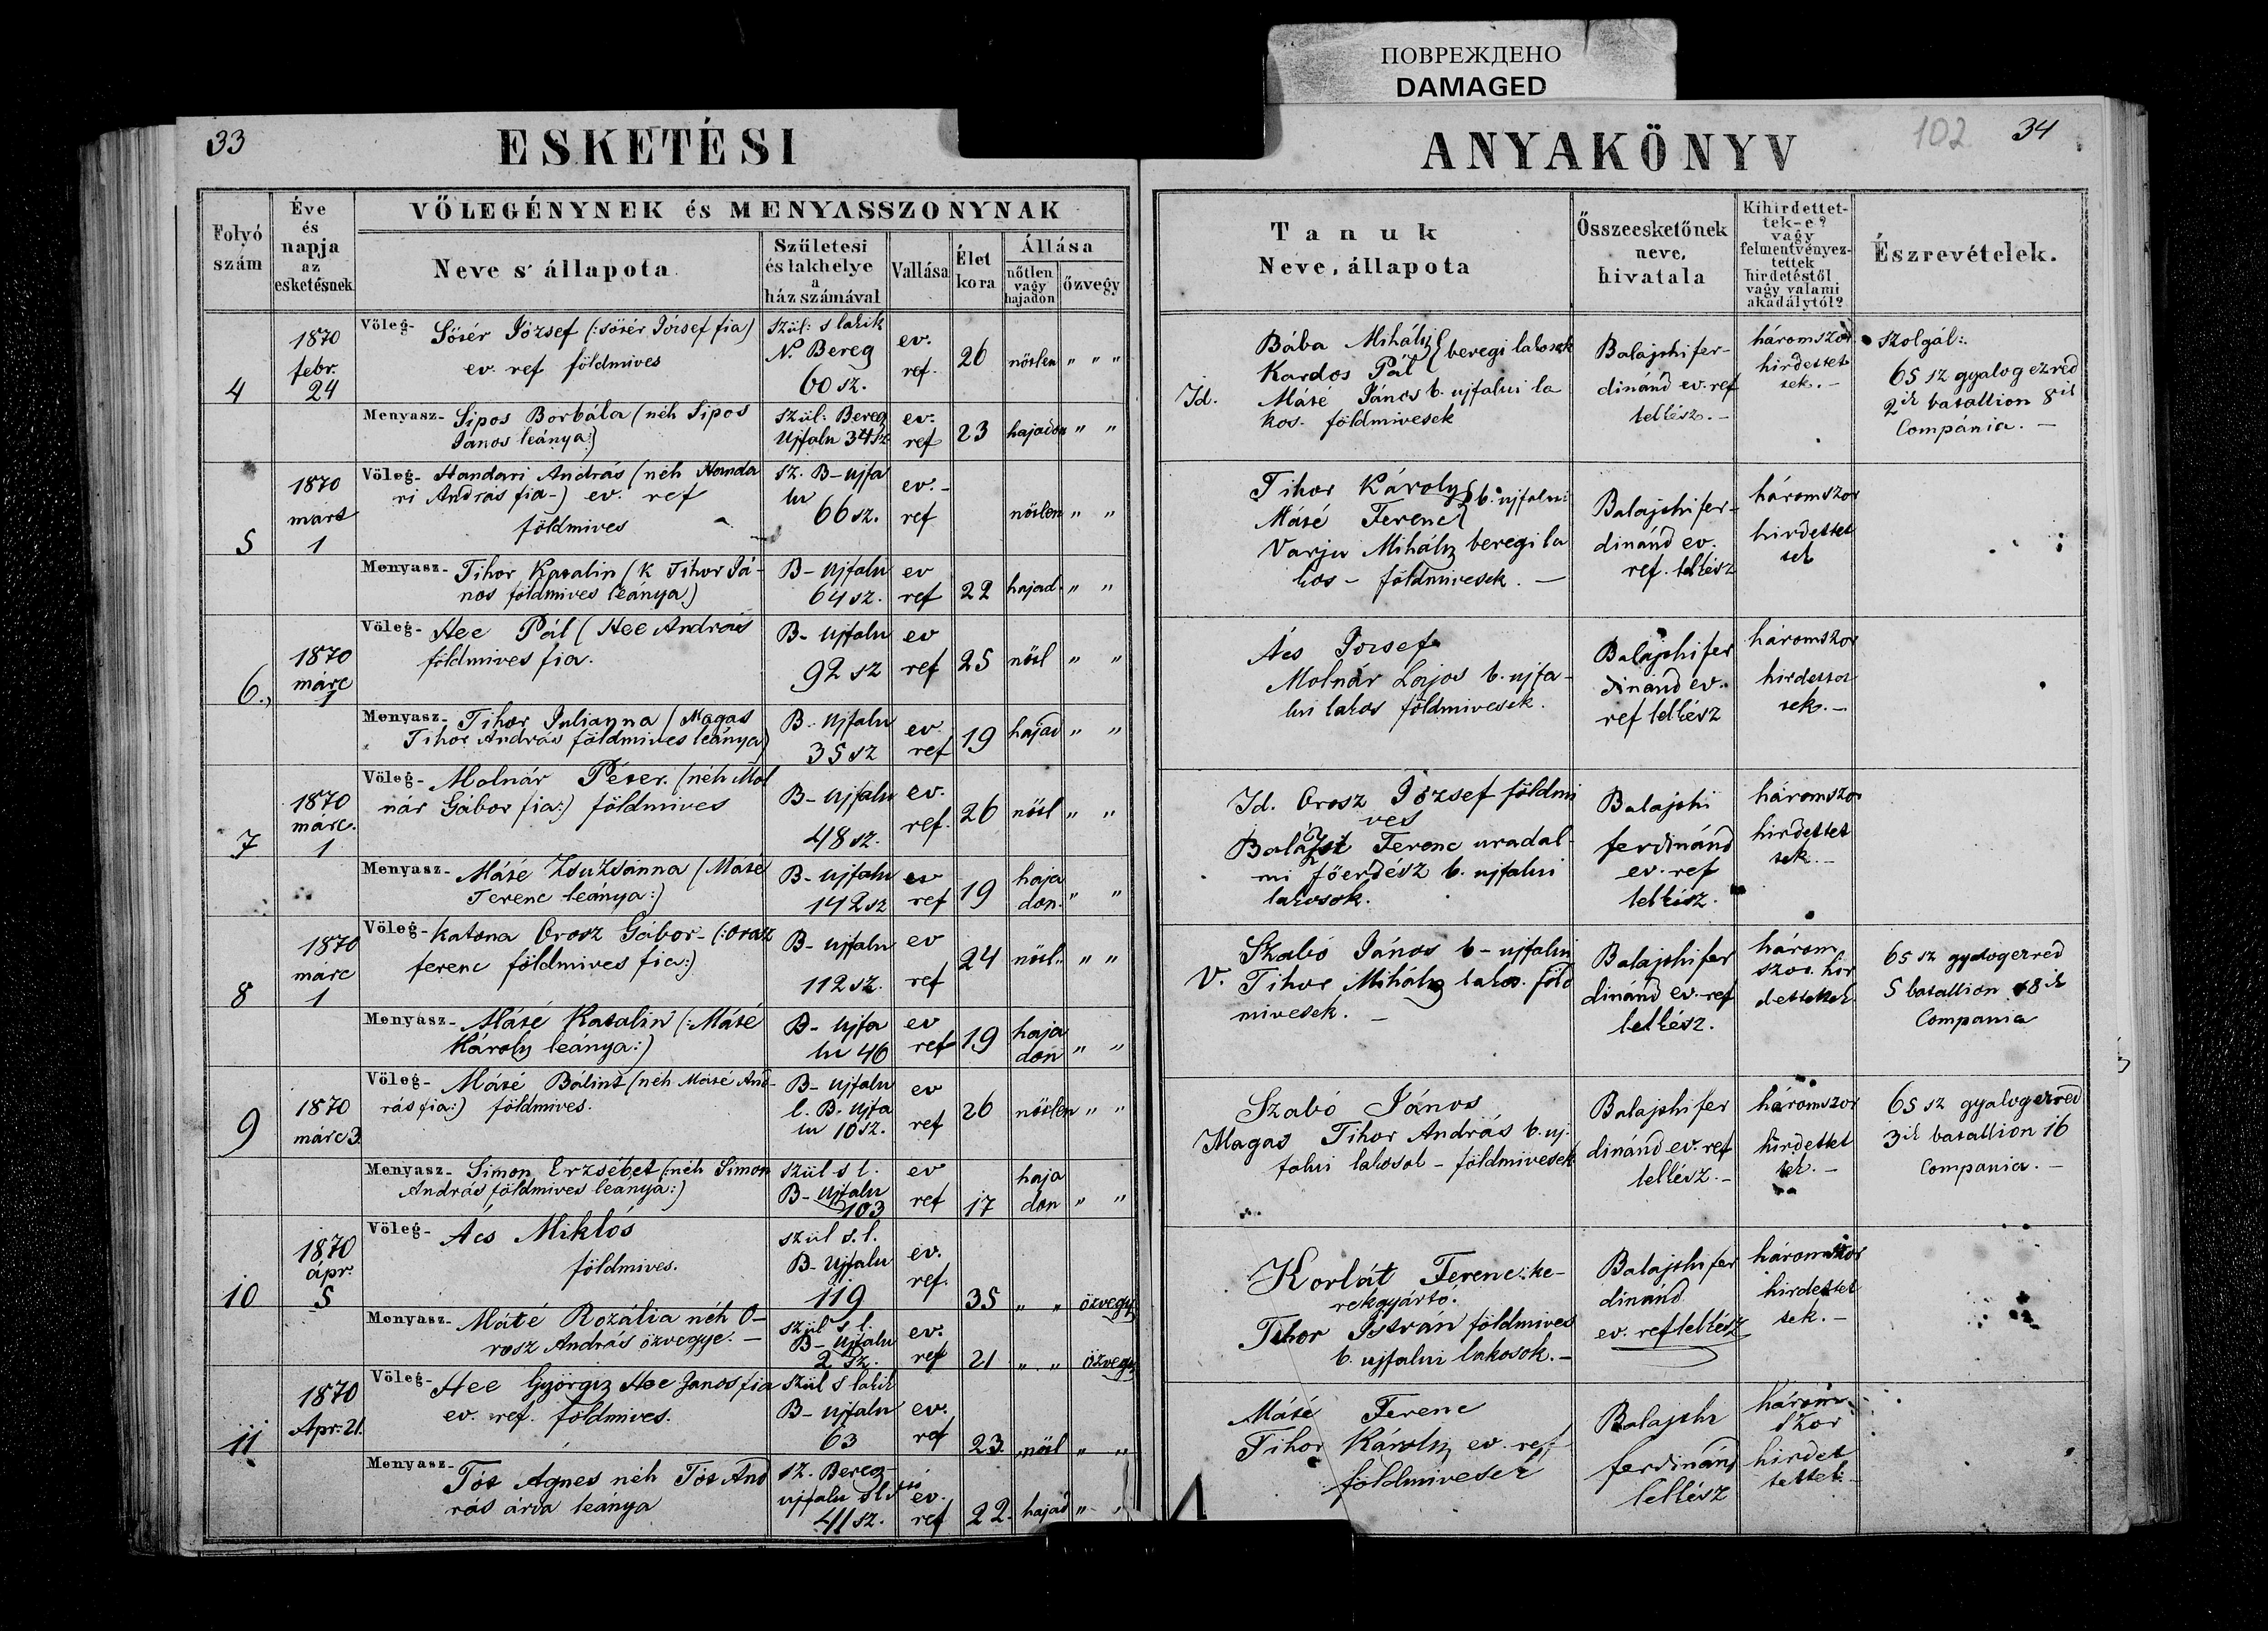 ПОВРЕЖДЕНО
DAMAGED
33
ESKETÉSI
ANYAKÖNYV
102
34
Folyó szám
Éve és napja az esketésnek
VŐLEGÉNYNEK és MENYASSZONYNAK
Neve s állapota
Születesi és lakhelye a ház számával
Vallása
Élet kora
Állása
nőtlen vagy hajadon
özvegy
Tanuk
Neve, állapota
Összeesketőnek neve, hivatala
Kihirdettet-tek-e? vagy felmentvényez-tettek hirdetéstől vagy valami akadálytól?
Észrevételek.
4
1870
febr.
24
Vőleg- Sősér József (: Sősér József fia)
ev. ref földmives
Szül: s lakik
N. Bereg
60 sz.
ev.
ref.
26
nőtlen " " "
Menyasz- Sipos Borbála (néh Sipos
János leánya:)
szül: Bereg
Ujfalu 34 sz
ev.
ref
23
hajadon " "
Bába Mihály
Kardos Pál } beregi lakosok
Id. Máté János b. ujfalui la
kos. földmivesek
Balajthi fer-
dinánd ev. ref
lelkész. -
háromszor
hirdettet
tek. -
szolgál:
65 sz gyalog ezred
2ik batallion 8ik
Compánia. -
5
1870
mart
1
Vőleg- Handari András (néh Handa
ri András fia -) ev. ref
földmives
sz. B-ujfa
lu
66 sz.
ev. -
ref
nőtlen " "
Menyasz- Tihor Katalin (K Tihor Já-
nos földmives leánya)
B-Ujfalu
64 sz.
ev
ref
22
hajad. " "
Tihor Károly
Máté Ferenc } b. ujfalui
Varju Mihály beregi la
kos - földmivesek. -
Balajthi fer-
dinánd ev.
ref. lelkész
háromszor
hirdettet
tek
6.,
1870
márc
1
Vőleg- Hee Pál (Hee András
földmives fia.
B-Ujfalu
92 sz
ev
ref
25
nőtl " "
Menyasz- Tihor Julianna (Magas
Tihor András földmives leánya)
B-Ujfalu
35 sz
ev.
ref
19
hajad " "
Ács József
Molnár Lajos b. ujfa-
lui lakos földmivesek.
Balajthi fer
dinánd ev.
ref lelkész
háromszor
hirdettet
tek. -
7
1870
márc.
1
Vőleg- Molnár Péter. (néh Mol
nár Gábor fia:) földmives
B-Ujfalu
48 sz.
ev.
ref.
26
nőtl " "
Menyasz- Máté Zsuzsánna (Máté
Ferenc leánya:)
B-Ujfalu
142 sz
ev
ref
19
haja
don. " "
Id. Orosz József földmi
ves
Ferenc uradal-
mi főerdész b. ujfalui
lakosok.
Balajthi
ferdinánd
ev. ref
lelkész.
háromszor
hirdettet
tek. -
8
1870
márc
1
Vőleg- Katona Orosz Gábor - (: Orosz
ferenc földmives fia:)
B-Ujfalu
112 sz.
ev
ref
24
nőtl: " "
Menyasz- Máté Katalin (: Máté
Károly leánya:)
B-Ujfa
lu 46
ev
ref
19
haja
don " "
Szabó János b-ujfalui
V. Tihor Mihály lakos. föld
mivesek. -
Balajthi fer
dinánd ev. ref
lelkész.
három
szor hir
dettetek
65 sz gyalogezred
5 batallion 8ik
Compania
9
1870
márc 3.
Vőleg- Máté Bálint (néh Máté And-
rás fia:) földmives.
B-Ujfalu
l. B. Ujfa
lu 10 sz.
ev
ref
26
nőtlen " "
Menyasz- Simon Erzsébet (néh Simon
András földmives leánya:)
szül s l.
B-Ujfalu
103
ev
ref
17
haja
don " "
Szabó János
Magas Tihor András b. uj-
falui lakosok - földmivesek
Balajthi fer
dinánd ev. ref
lelkész. -
háromszor
hirdettet
tek. -
65 sz gyalogezred
3ik batallion 16
Compania. -
10
1870
ápr.
5
Vőleg- Ács Miklós
földmives.
szül s. l.
B-Ujfalu
119
ev.
ref.
35
" " özvegy
Menyasz- Máté Rozália néh O-
rosz András özvegye. -
szül s l.
B-Ujfalu
2 sz.
ev.
ref
21
" " özvegy
Korlát Ferenc: ke-
rékgyártó.
Tihor István földmives
b. ujfalui lakosok. -
Balajthi fer
dinánd
ev. ref lelkész
háromszor
hirdettet
tek. -
11
1870
Apr. 21.
Vőleg- Hee György Hee Janos fia
ev. ref. földmives.
szül s lakik
B-ujfalu
63
ev.
ref
23.
nőtl " "
Menyasz- Tót Ágnes néh Tót And
rás árva leánya
sz. Bereg-
ujfalu
41 sz.
ev.
ref
22.
hajad " "
Máté Ferenc
Tihor Károly ev. ref
földmivesek
Balajthi
ferdinánd
lelkész
három-
szor
hirdet
tettek -